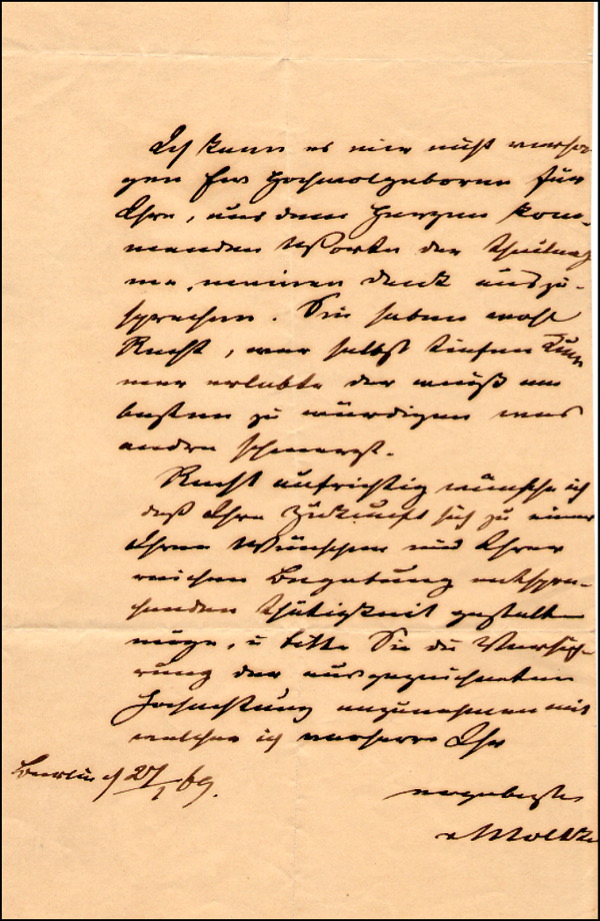 Ich kann es mir nicht versa-
gen Ew Hochwolgeboren für
Ihre, aus dem Herzen kom-
menden Worte der Theilnah
me, meinen Dank auszu-
sprechen. Sie haben wohl
Recht, wer selbst tiefen Kum
mer erlebte der weiß am
besten zu würdigen was
andre schmerzt.
Recht aufrichtig wünsche ich
daß Ihre Zukunft sich zu einer
Ihren Wünschen und Ihrer
reichen Begabung entspre-
chenden Thätigkeit gestalten
möge, u bitte Sie die Versich-
rung der ausgezeichneten
Hochachtung anzunehmen mit
welcher ich verharre Ihr
Berlin d 27/1 69.
ergebenster
v Moltke